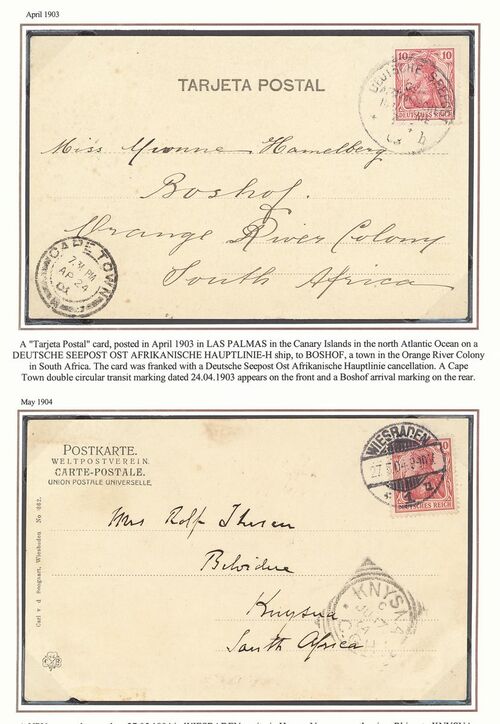 April 1903
TARJETA POSTAL
10 10
DEUTSCHES REICH
DEUTSCHE SEEPOST
Miss Yvonne Hamelberg
Boshof.
Orange River Colony
South Africa
CAPE TOWN
AP 24
A "Tarjeta Postal" card, posted in April 1903 in LAS PALMAS in the Canary Islands in the north Atlantic Ocean on a
DEUTSCHE SEEPOST OST AFRIKANISCHE HAUPTLINIE-H ship, to BOSHOF, a town in the Orange River Colony
in South Africa. The card was franked with a Deutsche Seepost Ost Afrikanische Hauptlinie cancellation. A Cape
Town double circular transit marking dated 24.04.1903 appears on the front and a Boshof arrival marking on the rear.
May 1904
POSTKARTE.
WELTPOSTVEREIN.
CARTE-POSTALE.
UNION POSTALE UNIVERSELLE.
WIESBADEN
10
DEUTSCHES REICH
Mrs Rolf Thesen
Belvidere
Knysna
South Africa
KNYSNA
Carl v. d. Boogaart, Wiesbaden No 262.